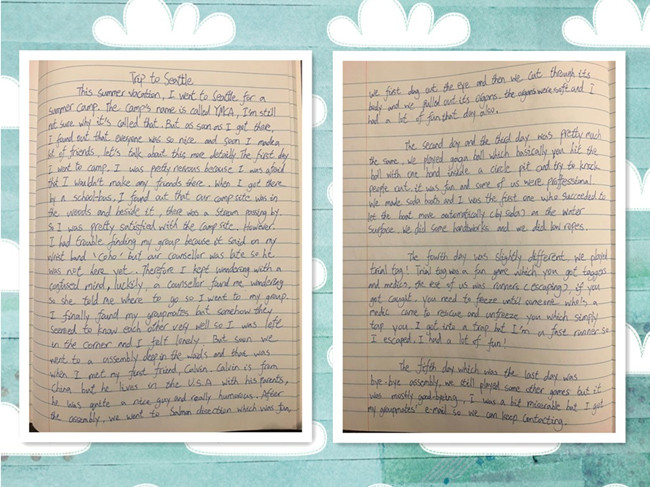 Trip to Seattle
This summer vacation, I went to Seattle for a
summer camp. The camp's name is called YMCA, I'm still
not sure why it's called that. But as soon as I got there,
I found out that everyone was so nice and soon I made a
lot of friends, let's talk about this more detailly. The first day
I went to camp. I was pretty nervous because I was afraid
that I wouldn't make any friends there. When I got there
by a school-bus, I found out that our camp site was in
the woods and beside it, there was a stream passing by
so I was pretty satisfied with the camp site. However,
I had trouble finding my group because it said on my
wrist band 'Coho' but our counsellor was late so he
was not here yet. Therefore I kept wandering with a
confused mind, luckily, a counsellor found me wandering
so she told me where to go so I went to my group.
I finally found my groupmates but somehow they
seemed to know each other very well so I was left
in the corner and I felt lonely. But soon we
went to a assembly deep in the woods and there was
when I met my first friend, Calvin. Calvin is from
China but he lives in the U.S.A with his parents,
he was quite a nice guy and really humorous. After
the assembly, we went to Salmon disection which was fun,
we first dug out the eye and then we cut through its
body and we pulled out its organs. the organs were soft and I
had a lot of fun that day also.
The second day and the third day was pretty much
the same. we played ganga ball which basically you hit the
ball with one hand inside a circle pit and try to knock
people out. it was fun and some of us were proffessional.
We made solar boats and I was the first one who succeeded to
let the boat move automatically (by solar) on the water
surface. we did some handworks and we did low ropes.
The fourth day was slightly different. We played
trial tag! Trial tag was a fun game which you got taggers
and medics, the rest of us was runners (escaping), if you
got caught. you need to freeze until someone who's a
medic came to rescue and unfreeze you which simply
tap you. I got into a trap but I'm a fast runner so
I escaped. I had a lot of fun!
The fifth day which was the last day was
bye-bye assembly, we still played some other games but it
was mostly goodbyeing. I was a bit miserable but I got
my groupmates' e-mail so we can keep contacting.